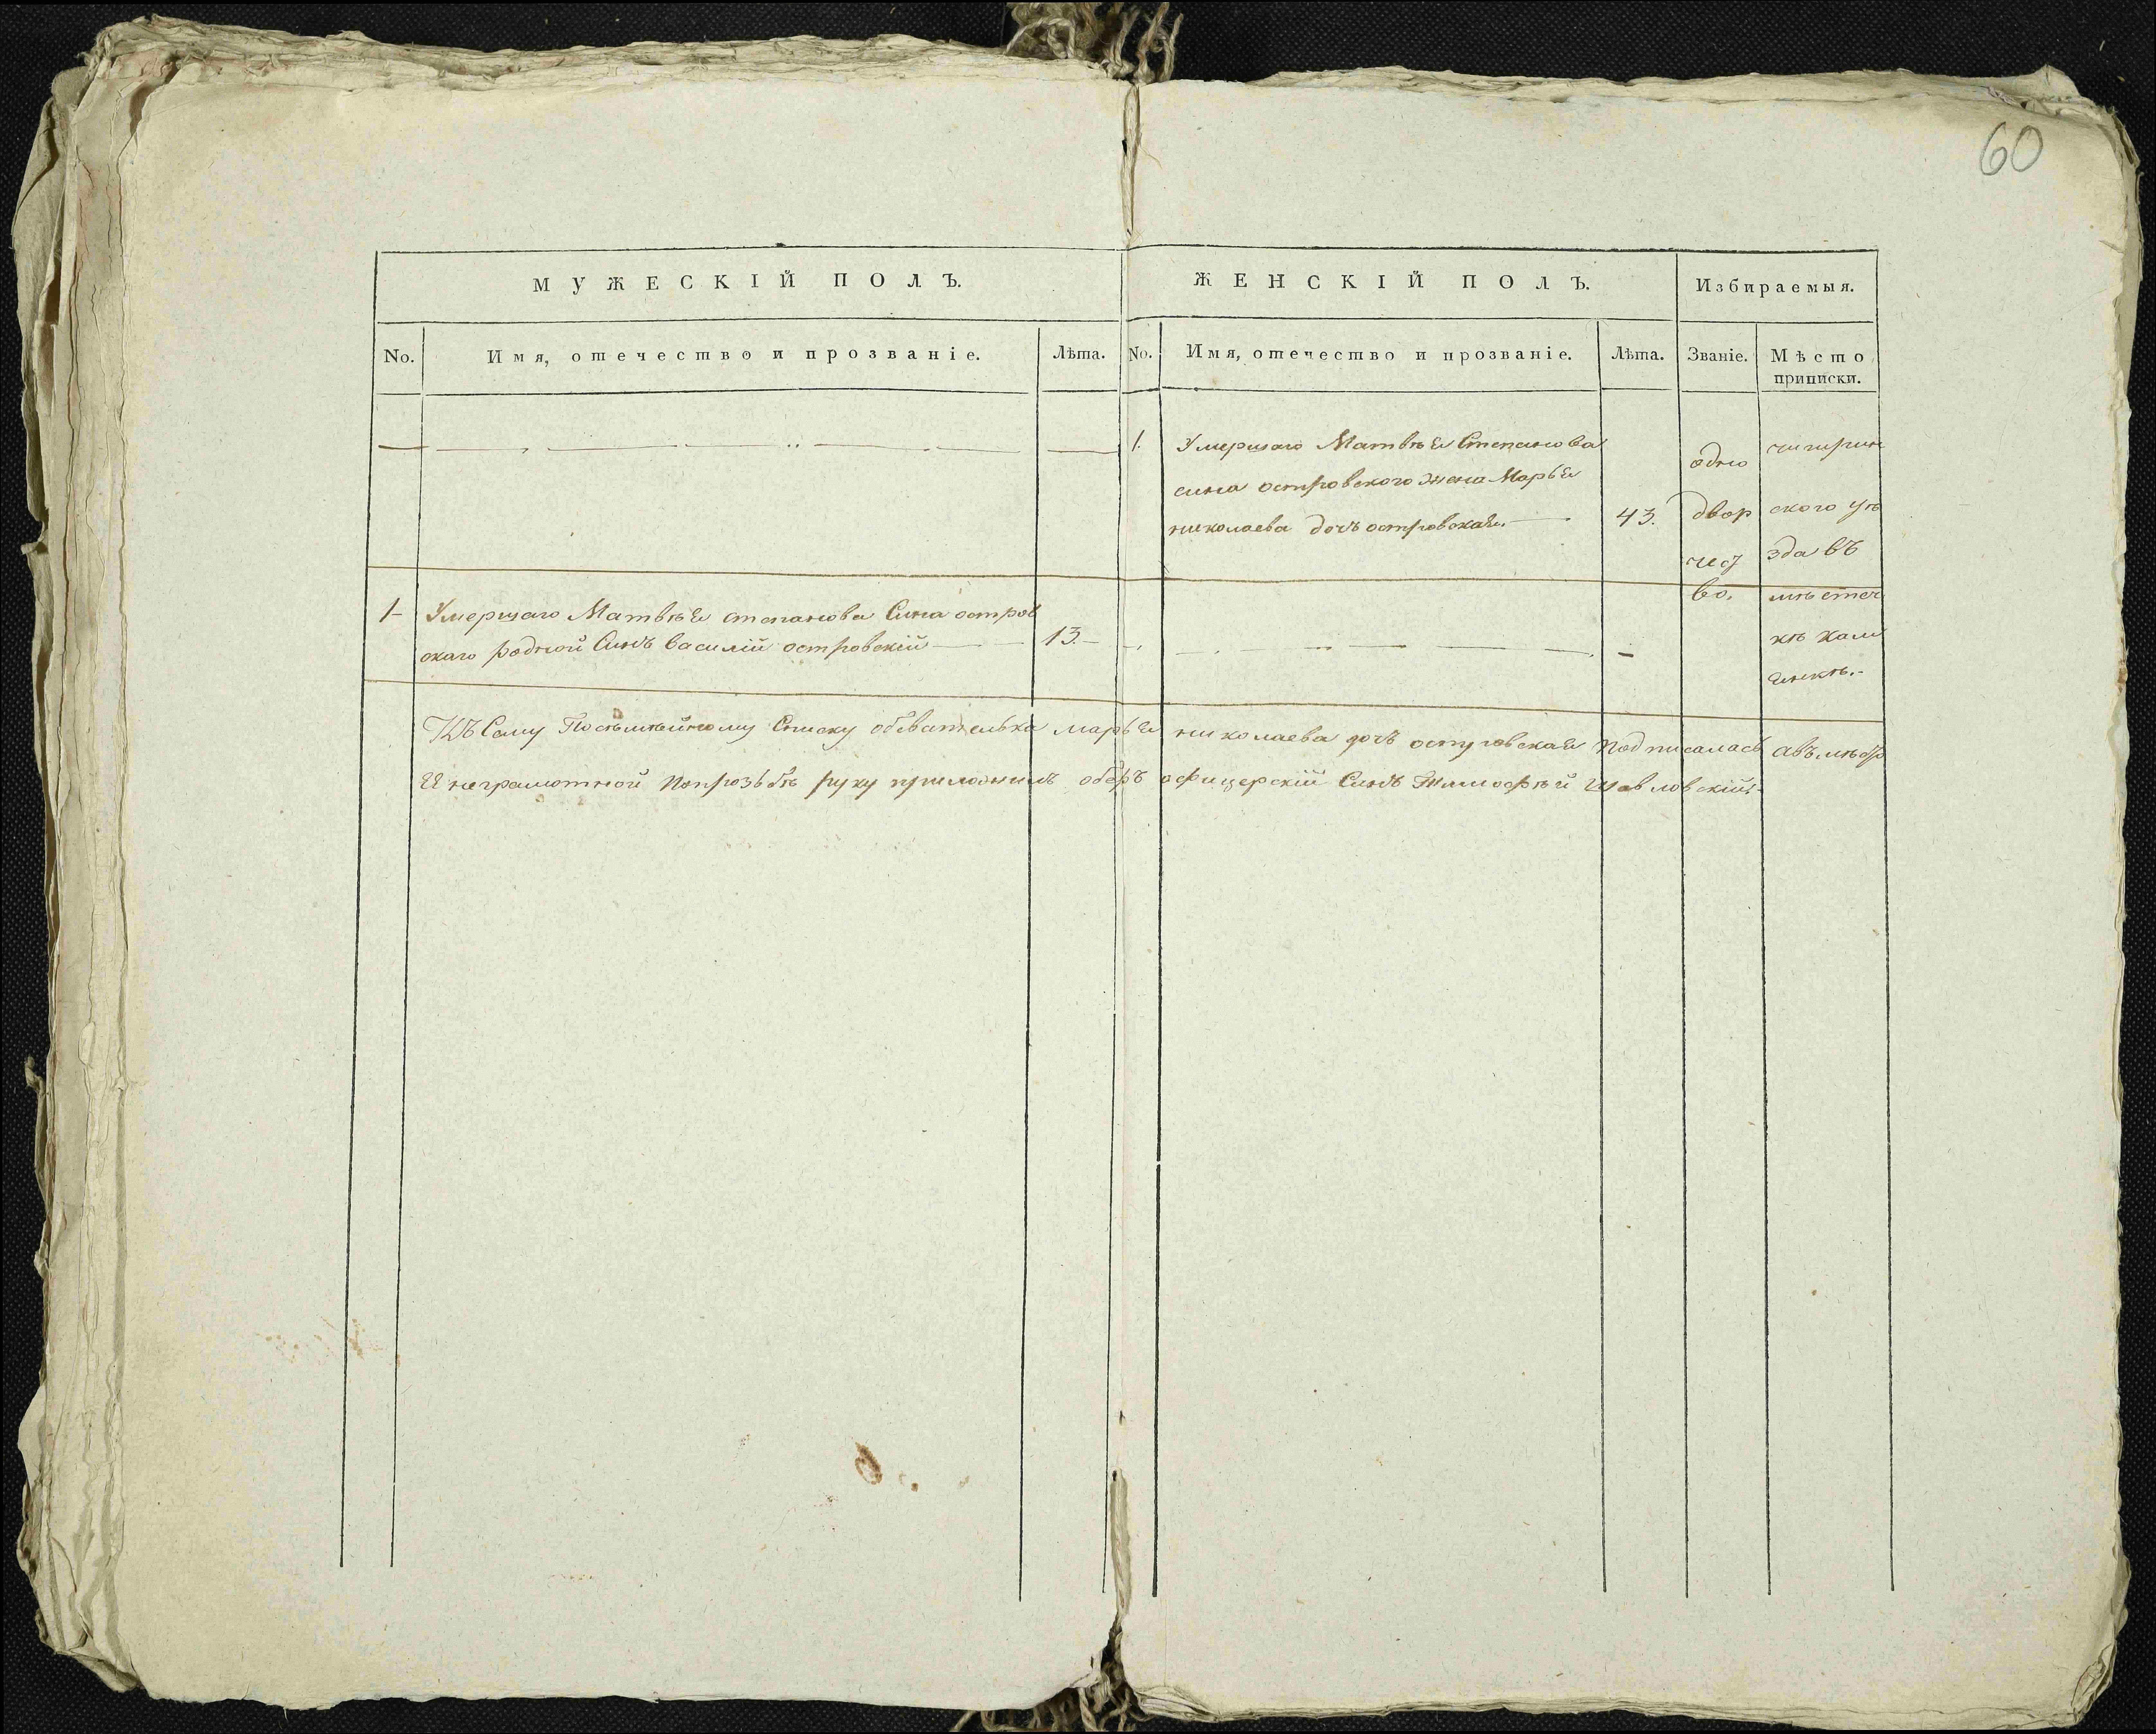 60
МУЖЕСКІЙ ПОЛЪ. ЖЕНСКІЙ ПОЛЪ. Избираемыя.
No. Имя, отечество и прозваніе. Лѣта. No. Имя, отечество и прозваніе. Лѣта. Званіе. Мѣсто приписки.
1. Умершаго Матвѣя Степанова
сина островского жена Марья
николаева дочъ островская. 43.
одно
двор
чест
во.
чигирин
ского уѣ
зда въ
мѣстеч
кѣ Кам
янкѣ.
1 Умершаго Матвѣя степанова Сина остров
скаго родной Синъ василій островскій 13.
Къ Сему Посѣмѣйному Списку обевателька марья николаева дочъ островская подписалась авъмѣсто
Ея неграмотной Попрозьбѣ руку приложилъ оберъ офицерскій Синъ Тимофѣй